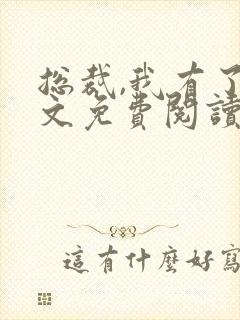 总裁,我有了
文免费閱讀
這有什麼好寫